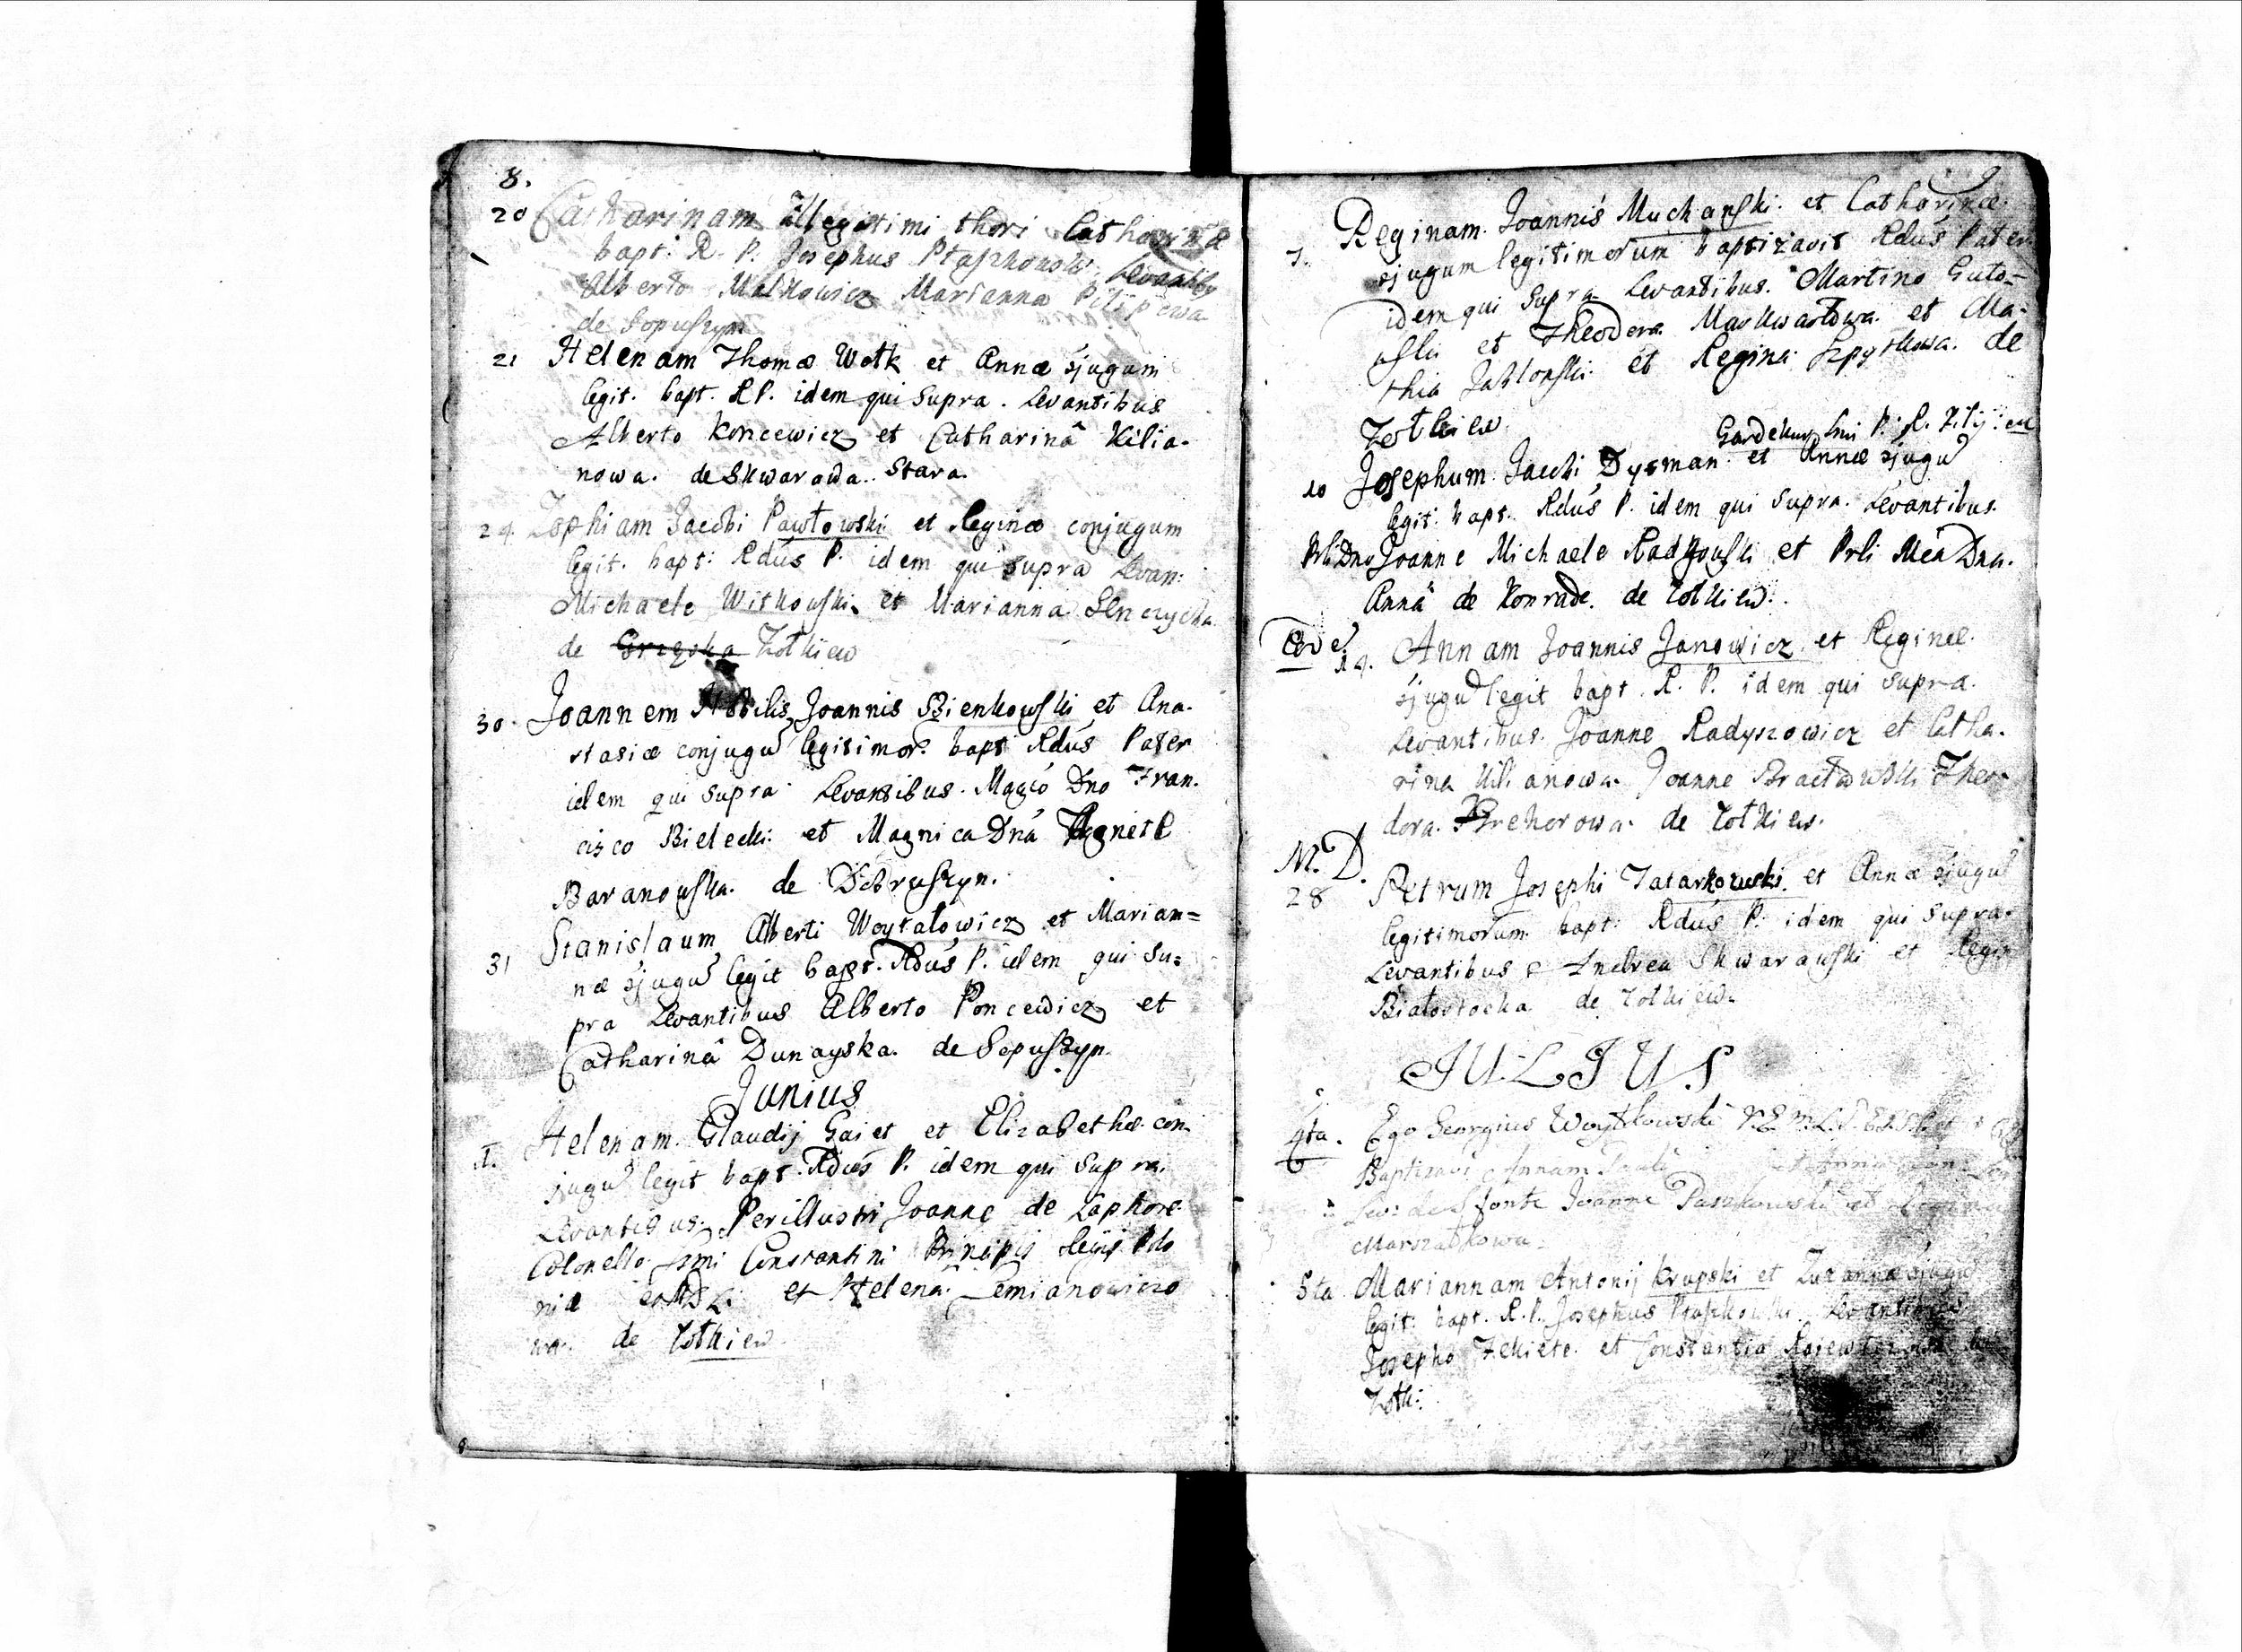 8.
20 Catharinam Illegitimi thori Catharinæ
bapt: R. P. Josephus Ptaszkowski Levantibus
Alberto Malkowicz Marianna
de Sopuszyn
21 Helenam Thomæ Wotk et Annæ sjugum
legit. bapt. RP. idem qui Supra. Levantibus
Alberto Koncewicz et Catharinâ Kilia-
nowa. de Skwarawa. Stara.
24. Zophiam Jacobi Pawłowski et Reginæ conjugum
legit. bapt: Rdús P. idem qui Supra Levan:
Michaele Witkowski et Marianna Senczycha
de Grzęska Zołkiew
30. Joannem Nobilis Joannis Bienkowski et Ana-
stasiæ conjugu legitimor. bapt Rdús Pater
idem qui Supra. Levantibus. Magco Dno Fran.
cisco Bielecki et Magnica Dná Agnete
Baranowska. de Dobruszyn.
31 Stanislaum Alberti Woytałowicz et Marian=
næ sjugu legit bapt. Rdús P. idem qui Su=
pra Levantibus Alberto Poncewicz et
Catharinâ Dunayska. de Sopuszyn.
Junius
1. Helenam. Claudij Gaiet et Elizabethæ con-
jugu legit bapt. Rdús P. idem qui Supra.
Levantibus. Perillustri Joanne de Laphore
Colonello Smi Constantini Principis Regij Polo
niæ et Helena. Semianowiczo
wa. de Zołkiew
9
7. Reginam. Joannis Muchanski. et Catharinæ.
sjugum legitimorum baptizavit Rdús Pater
idem qui Supra Levantibus. Martino Guto-
wski et Theodora Maskwartowa. et Ma-
thia Jabłonski. et Regina Szpytkowa. de
Zołkiew
Gardekur Smi P. R.
10 Josephum. Jacobi Dysman et Annæ sjugu
legit: bapt. Rdús P. idem qui Supra. Levantibus.
Prli Dno Joanne Michaele Radzowski et Prli Mca Dna.
Annâ de Konrade. de Zołkiew.
14. Annam Joannis Janowicz. et Reginæ.
sjugu legit bapt. R. P. idem qui supra.
Levantibus. Joanne Radyszowicz et Catha-
rina Kilianowa. Joanne Theo
dora. Hrehorowa. de Zołkiew.
M. D.
28 Petrum Josephi Tatarkowski. et Annæ sjugu
legitimorum. bapt: Rdús P. idem qui Supra.
Levantibus Andrea Skwarawski et Regin
Białostocka de Zołkiew.
JULJUS
4ta. Ego Georgius Woytkowski
Baptisavi Annam Pauli
Lev: de S. fonte Joanne Paszkowski et
Marszałkowa.
5ta Mariannam Antonij Krupski et Zuzannæ sjugu
legit: bapt. R. P. Josephus Ptaszkowski. Levantibus
Josepho Fekiete. et Constantia
Zołk: